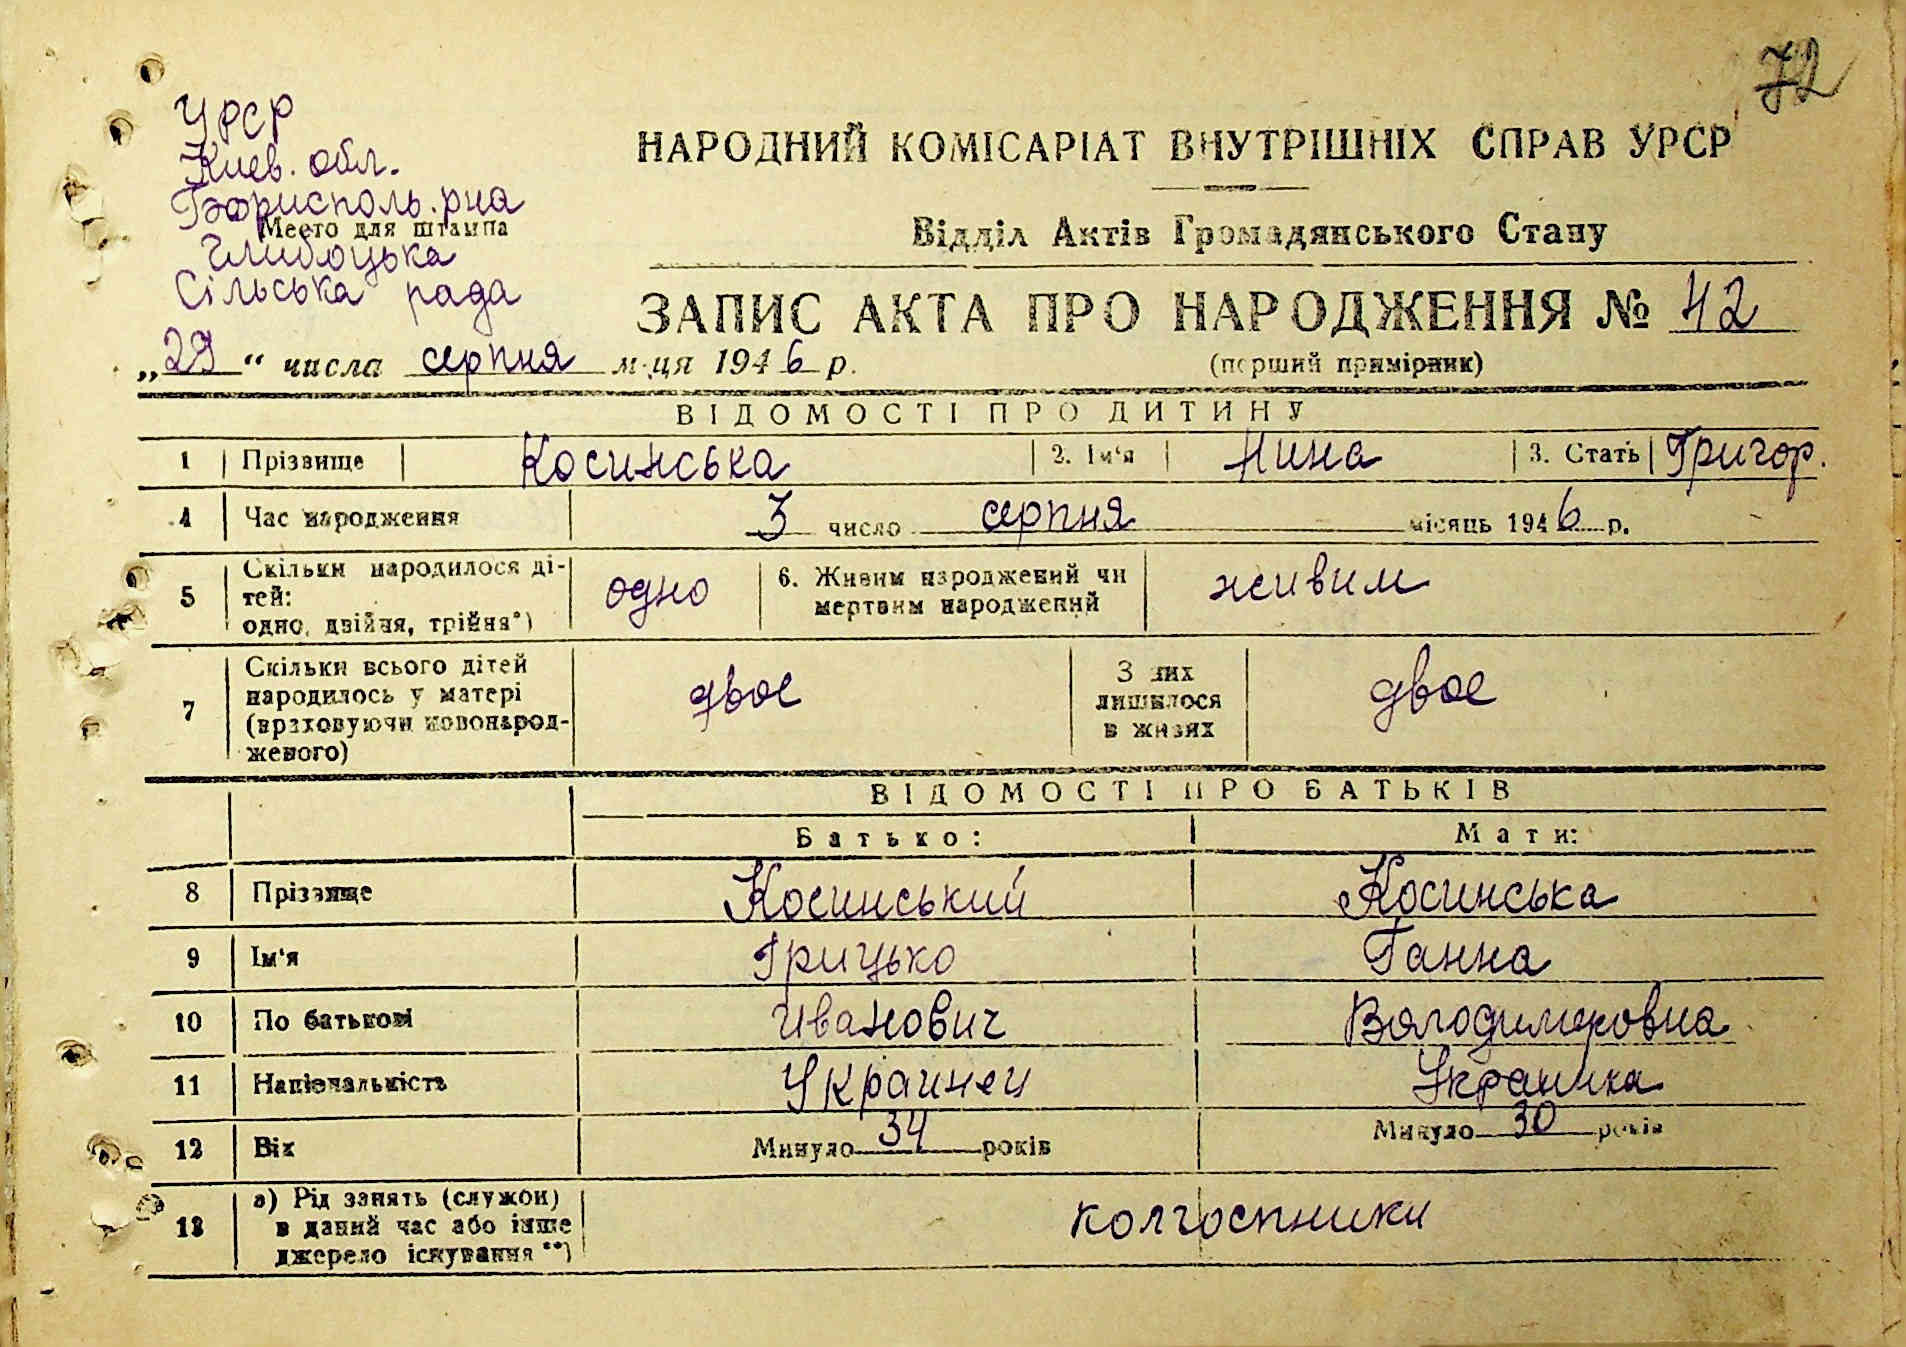 72
УРСР
Киев. обл.
Бориспол. рна
Место для штампа
Глибоцька
Сільська рада
НАРОДНИЙ КОМІСАРІАТ ВНУТРІШНІХ СПРАВ УРСР
Відділ Актів Громадянського Стану
ЗАПИС АКТА ПРО НАРОДЖЕННЯ № 42
„29“ числа серпня м-ця 1946 р.
(перший примірник)
ВІДОМОСТІ ПРО ДИТИНУ
1 Прізвище Косинська 2. Ім'я Нина 3. Стать Григор.
4 Час народження 3 число серпня місяць 1946 р.
5 Скільки народилося ді-
тей:
одно, двійня, трійня*) одно
6. Живим народжений чи
мертвим народжений живим
7 Скільки всього дітей
народилось у матері
(враховуючи новонарод-
женого) двое
З них
лишилося
в живих двое
ВІДОМОСТІ ПРО БАТЬКІВ
Батько: Мати:
8 Прізвище Косинський Косинська
9 Ім'я Грицько Ганна
10 По батькові Иванович Володимировна
11 Національність Украинец Украинка
12 Вік Минуло 34 років Минуло 30 років
13 а) Рід занять (служби)
в даний час або інше
джерело існування**) колгоспники